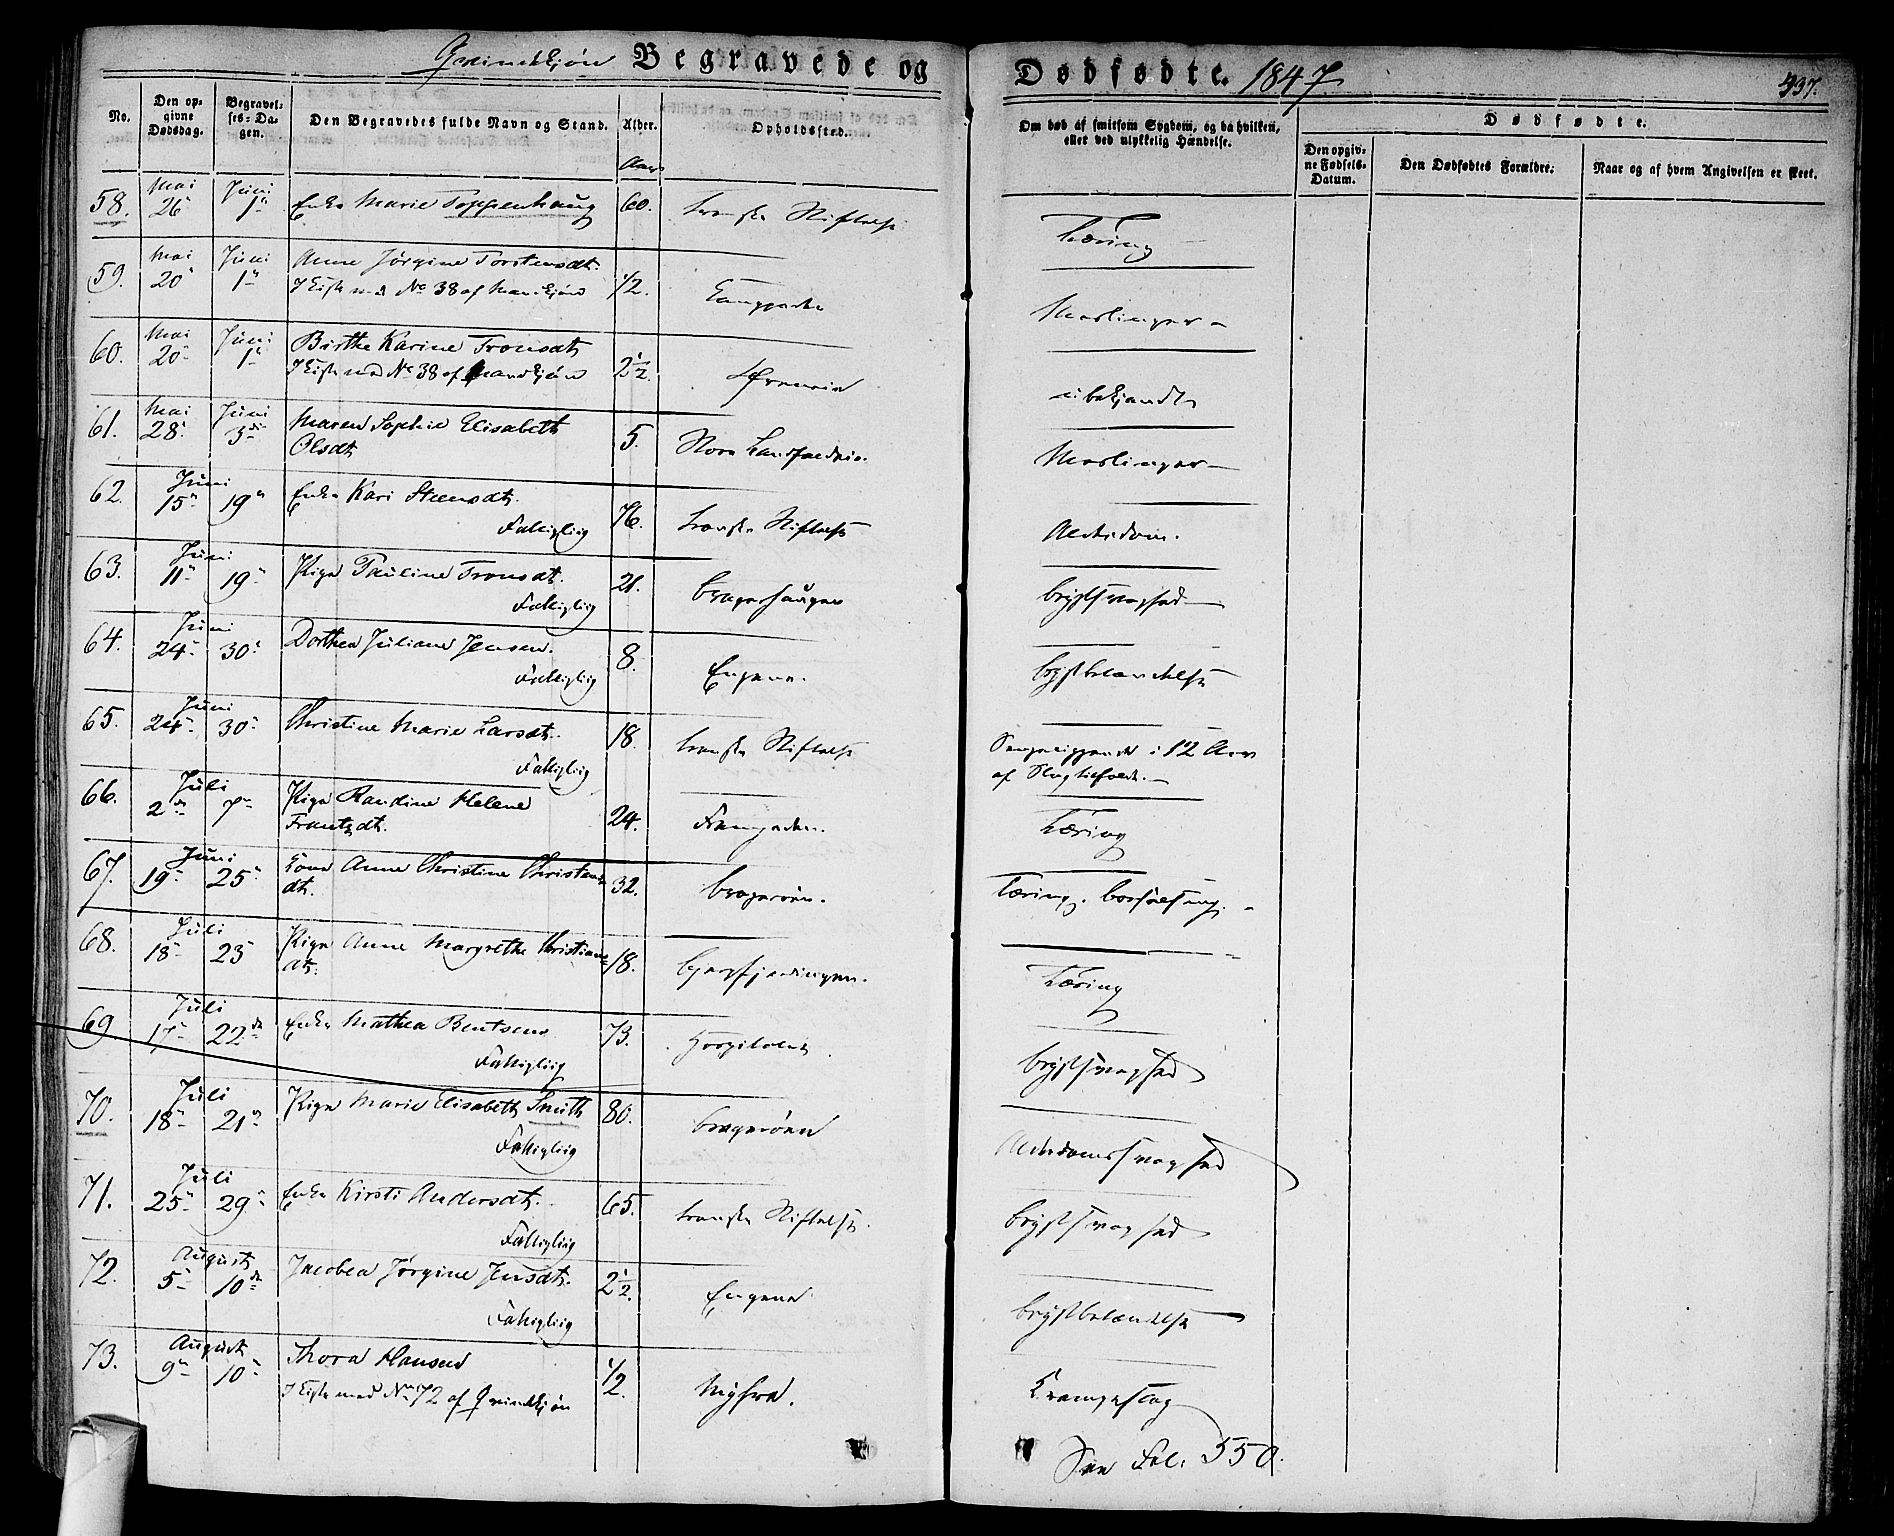 Qvindekjøn Begravede og Dødfødte. 1847 337.
No. Den opgivne Dødsdag. Begravelses-Dagen. Den Begravedes fulde Navn og Stand. Alder. Opholdssted. Om død af smitsom Sygdom, og da hvilken, eller ved ulykkelig Hændelse. Dødfødte.
Den opgivne Fødsels-Datum. Den Dødfødtes Forældre. Naar og af hvem Angivelsen er skeet.
Aar
58. Mai 26 Juni 1 Enke Marie Toppenhaug 60. Svenske Stiftelse Tæring
59. Mai 20 Juni 1 Anne Jørgine Torstensdt.
I Kiste med No 38 af Mandkjøn 1/2. Meslinger
60. Mai 20 Juni 1 Birthe Karine Tronsdt
I Kiste med No 38 af Mandkjøn 2 1/2. ubekjendt
61. Mai 28 Juni 3 Maren Sophie Elisabeth
Olsdt 5. Store Landfaldøie. Meslinger
62. Juni 15 19 Enke Kari Steensdt.
Fattiglig 76. Svenske Stiftelse Alderdom.
63. Juni 11 19 Pige Pauline Tronsdt.
Fattiglig 21. Bragerhaugen Brystsvaghed
64. Juni 24 30 Dorthea Juliane Jensen.
Fattiglig 8. Engene. Brystbetændelse
65. Juni 24 30 Christine Marie Larsdt.
Fattiglig 18. Svenske Stiftelse Sengeliggende i 12 Aar
af
66. Juli 2 7 Pige Randine Helene
Frantzdt. 24. Tæring
67. Juni 19 25 Kone Anne Christine Christens
dt. 32. Bragerøen. Tæring,
68. Juli 18 23 Pige Anne Margrethe Christians
dt. 18. Bjergfjerdingen. Tæring
69 Juli 17 22 Enke Mathea Bentsen
Fattiglig 73. Hospitalet. Brystsvaghed
70. Juli 18 21 Pige Marie Elisabeth Smith
Fattiglig 80. Bragerøen Alderdomssvaghed
71. Juli 25 29 Enke Kirsti Andersdt.
Fattiglig 65. Svenske Stiftelse. Brystsvaghed
72. August 5 10 Jacobea Jørgine Jensdt.
Fattiglig 2 1/2. Engene Brystbetændelse
73. August 9 10 Thora Hansen
I Kiste med No 72 af Qvindekjøn 1/2. Myhra. Krampeslag
See Fol. 550.